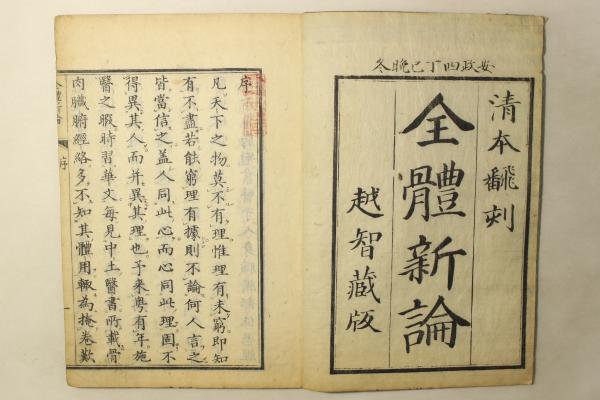 安政四丁巳晩冬
清本翻刻
全體新論
越智藏版
序
凡天下之物莫不有理惟理有未窮即知
有不盡若能窮理有據則不論何人言之
皆當信之蓋人同此心而心同此理固不
得異其人而并異其理也予來粵有年施
醫之暇時習華文每見中土醫書所載骨
肉臟腑經絡多不知其體用輒為掩卷歎